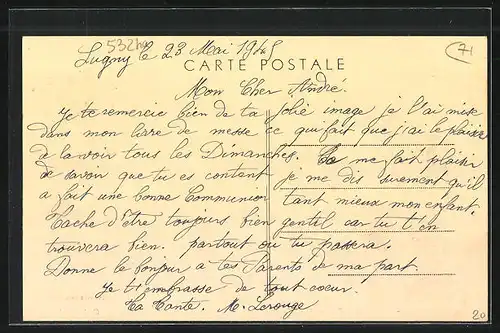 53240
71
Lugny le 23 Mai 1945
CARTE POSTALE
Mon Cher André.
Je te remercie bien de ta jolie image je l'ai mise
dans mon livre de messe ce qui fait que j'ai le plaisir
de la voir tous les Dimanches. Ca me fait plaisir
de savoir que tu es content je me dis surement qu'il
a fait une bonne Communion tant mieux mon enfant.
Tache d'être toujours bien gentil car tu t'en
trouvera bien. partout ou tu passera.
Donne le bonjour a tes Parents de ma part.
Je t'embrasse de tout coeur.
Ta Tante. M. Lerouge
20